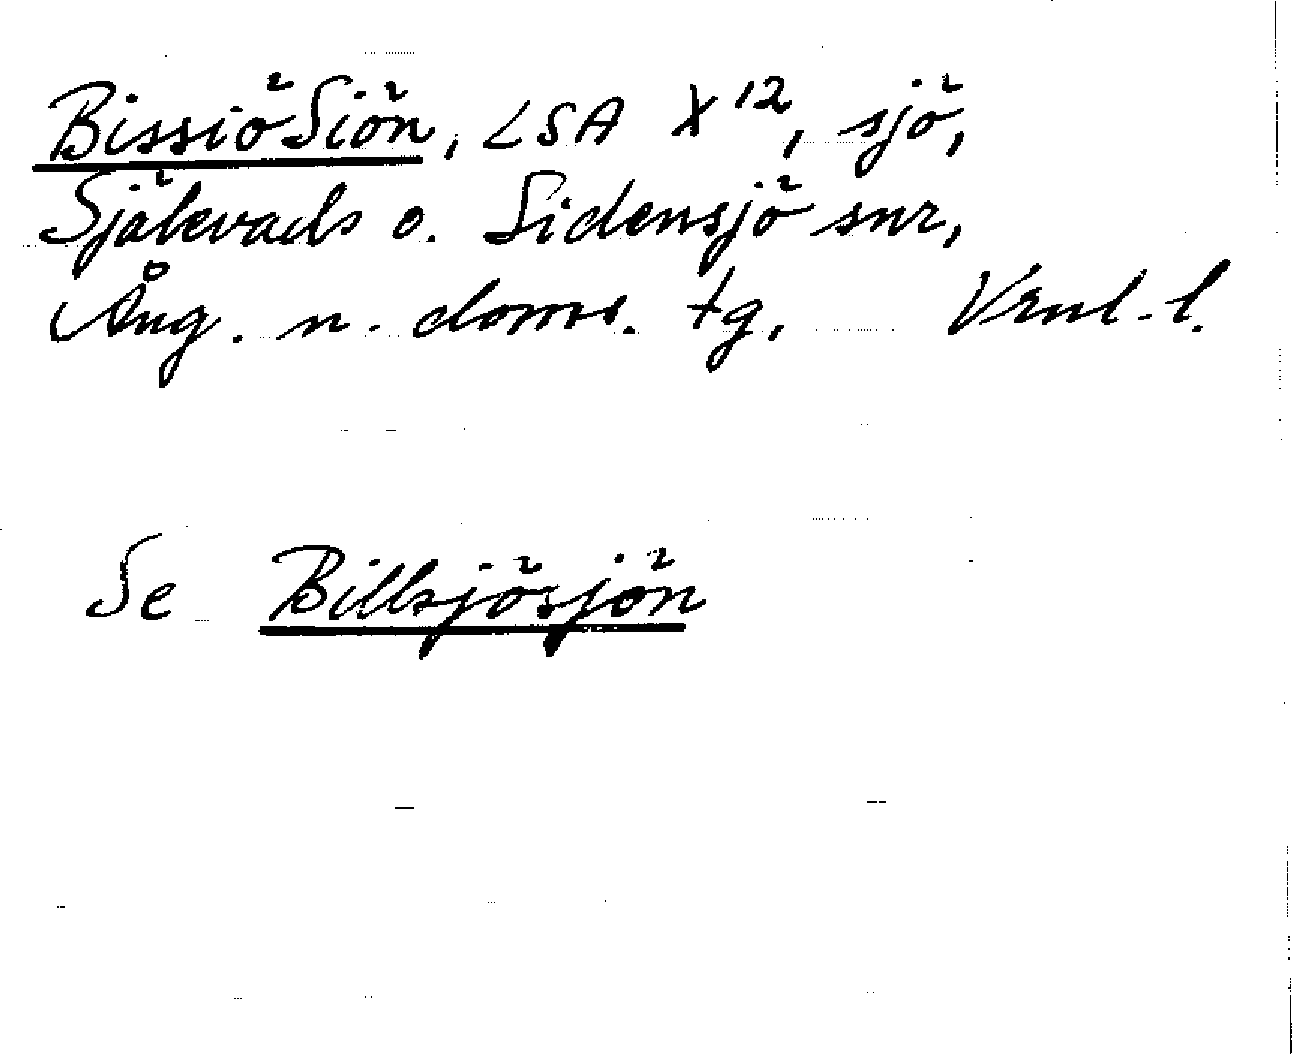 BissiöSiön, LSA X 12, sjö,
Själevads o. Sidensjö snr,
Ång. n. doms. tg, Vrnl. l.
Se Billsjösjön